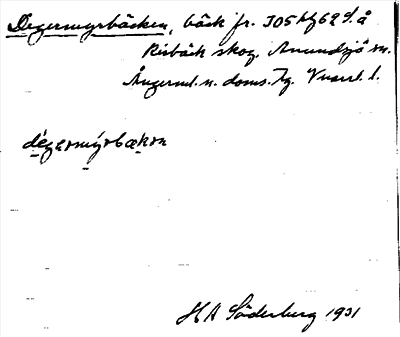 Degermyrbäcken, bäck fr. J05 h/f 62 s/. å
Risbäck skog. Anundsjö sn.
Ångerml. n. doms. Jg. Vnorrl. l.
dégərmýrbækən
H A Söderberg 1931